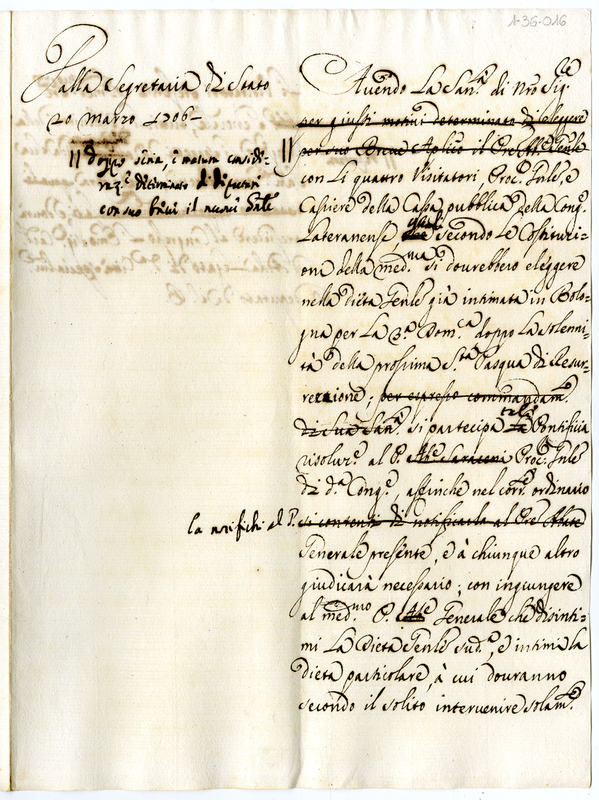 1-36-016
Dalla Segretaria di Stato
20 Marzo 1706
// doppo seria, e matura conside-
raz.e determinato di deputare
con suo breve il nuovo Gnle
Avendo La San.tà di Nro Sig.re
per giusti motivi determinato di eleggere
per suo Breve Aplico il Pre Abb.e Gnle
con Li quattro Visitatori Proc.re Gnle, e
Cassiere della Cassa pubblica della Cong.e
Lateranense quali secondo Le Costituzi-
oni della med.ma si dovrebbero eleggere
nella dieta Genle già intimata in Bolo-
gna per La 3.a Dom.ca doppo La Solenni-
tà della prossima S.ta Pasqua di Resur-
rezzione; per espresso commandam.to
di Sua San.tà si partecipa tale Pontificia
risoluz.e al P. Ab.e Saraceni Proc.re Gnle
di d.a Cong.e, affinche nel corr.e ordinario
la notifichi al P. si contenti di notificarla al Pre Abate
Generale presente, e à chiunque altro
giudicarà necessario; con ingiungere
al med.mo P. Ab.e Generale che disinti-
mi La Dieta Genle sud.a, e intimi la
dieta particolare, à cui dovranno
secondo il solito intervenire solam.e